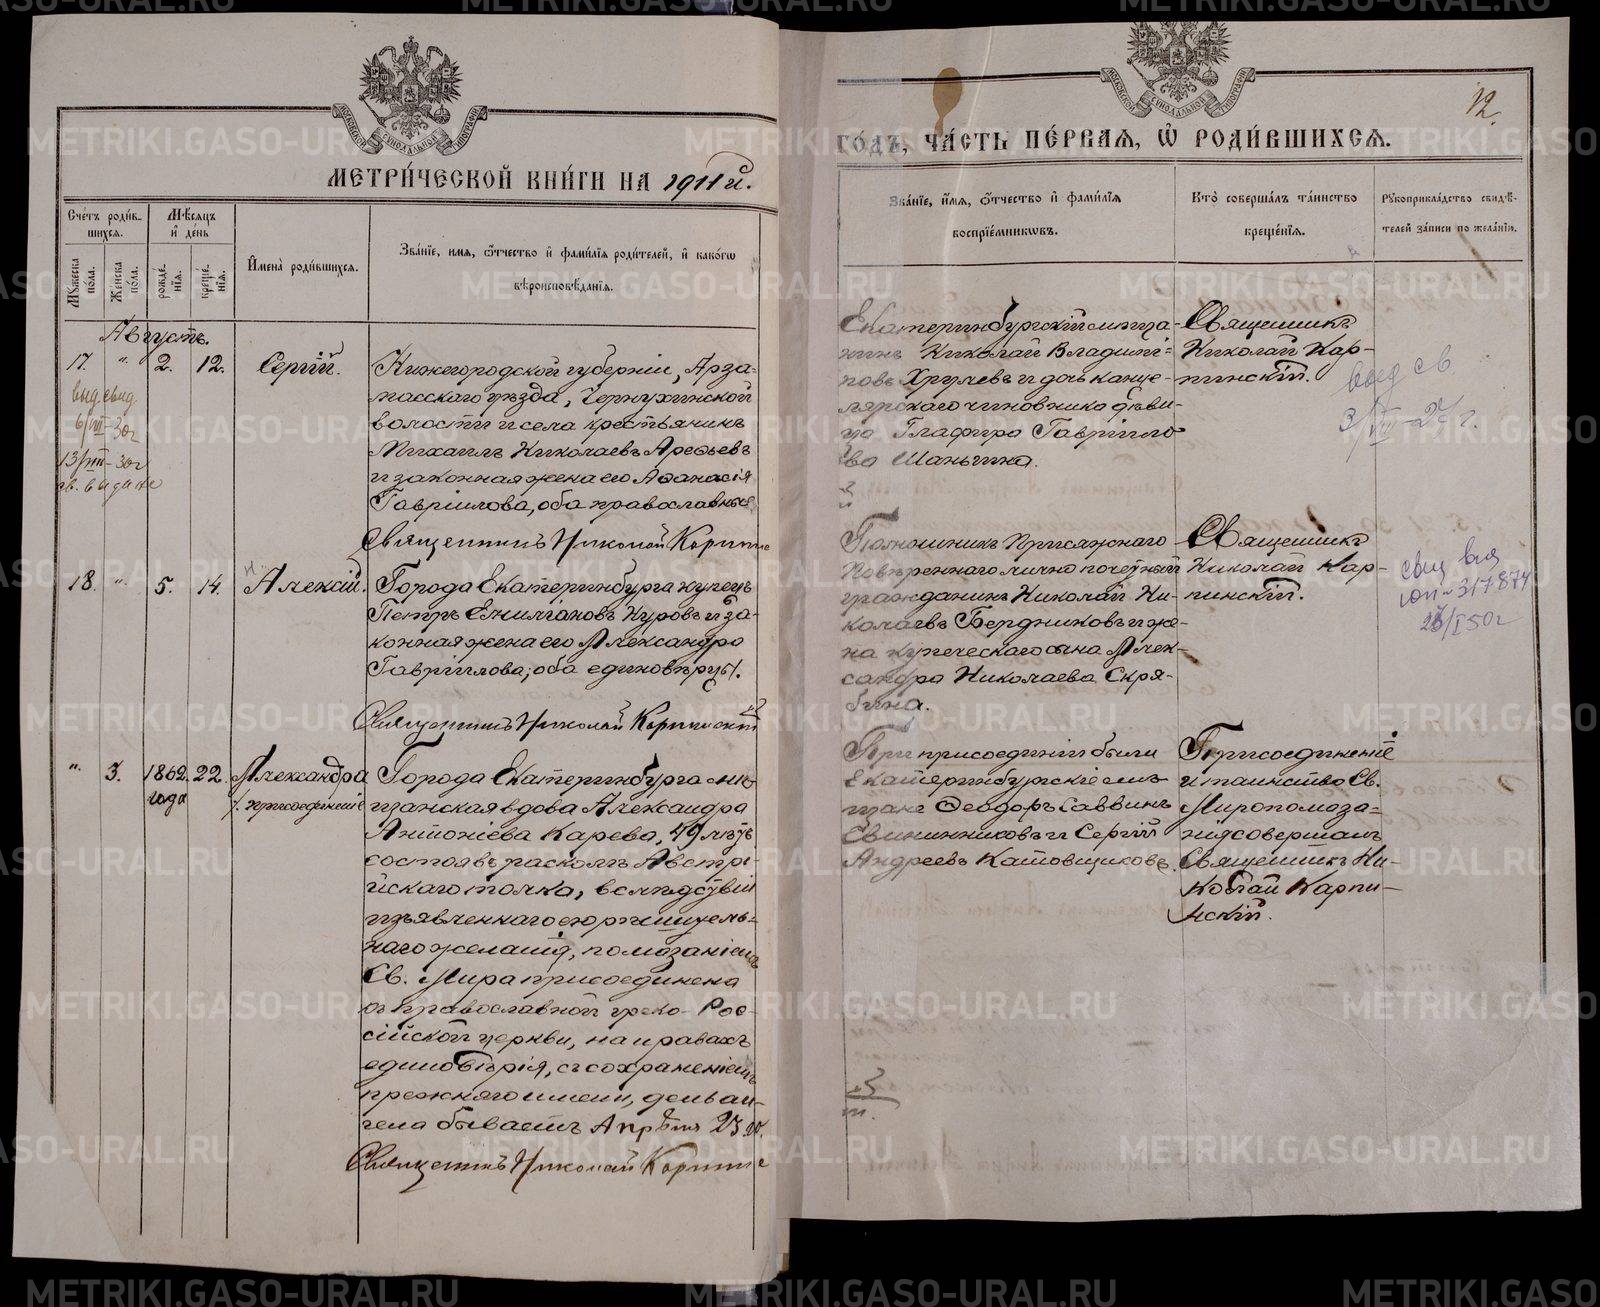 МЕТРИ́ЧЕСКОЙ КНИ́ГИ НА 1911 й.
Сче́тъ роди́в-
шихся.
Мѣ́сяцъ
и҆ де́нь
Мꙋ́жеска
по́ла.
Же́нска
по́ла.
рожде́-
нїѧ.
креще́-
нїѧ.
И҆мена̀ роди́вшихсѧ.
Зва́нїе, и҆мѧ, ѻ҆́тчество и҆ фами́лїѧ роди́телей, и҆ како́гѡ
вѣроисповѣ́данїѧ.
Августъ.
17. " 2. 12. Сергій.
выд. свид.
6/VIII-30г
13/VIII-30г
св. выдано
Нижегородской губерніи, Арза-
масскаго уѣзда, Чернухинской
волости и села крестьянинъ
Михаилъ Николаевъ Арефьевъ
и законная жена его Аѳанасія
Гавріилова, оба православные
Священникъ Николай Карпинс
18. " 5. 14. Алексій.
Города Екатеринбурга купецъ
Петръ Емилiановъ Куровъ и за-
конная жена его Александра
Гавріилова, оба единовѣрцы.
Священникъ Николай Карпинскій
" 3. 1862 22. Александра
года
/. присоединеніе
Города Екатеринбурга мѣ-
щанская вдова Александра
Антоніева Карева, 49 лѣтъ
состоявъ расколѣ Австрі-
йскаго толка, вслѣдствіи
изъявленнаго ею рѣшитель-
наго желанія, помазаніемъ
Св. Мѵра присоединена
къ православной греко-Рос-
сійской церкви, на правахъ
единовѣрія, съ сохраненіемъ
прежняго имени, день ан-
гела бываетъ Апрѣля 23 го.
Священникъ Николай Карпинс
12.
ГО́ДЪ, ЧА́СТЬ ПЕ́РВАѦ, Ѡ҆ РОДИ́ВШИХСѦ.
Зва́нїе, и҆́мѧ, ѻ҆́тчество и҆ фами́лїѧ
воспрїе́мникѡвъ.
Кто̀ соверша́лъ та́инство
креще́нїѧ.
Рꙋкоприкла́дство свидѣ́-
телей за́писи по жела́нїю.
Екатеринбургскій мѣща-
нинъ Николай Владимі-
ровъ Хрулевъ и дочь канце-
лярскаго чиновника дѣви-
ца Глафира Гавріило-
ва Шаньгина.
Священникъ
Николай Кар-
пинскій.
выд св
3/VIII-27 г.
Помощникъ Присяжнаго
Повѣреннаго лично почетный
гражданинъ Николай Ни-
колаевъ Бердниковъ и же-
на купеческаго сына Алек-
сандра Николаева Скря-
бина.
Священникъ
Николай Кар-
пинскій.
При присоединіи были
Екатеринбургскіе мѣ-
щане Ѳеодоръ Саввинъ
Свининниковъ и Сергій
Андреевъ Катовщиковъ.
Присоединеніе
и таинство Св.
Мѵропомаза-
нія совершалъ
Священникъ Ни-
колай Карпи-
нскій.
METRIKI.GASO-URAL.RU